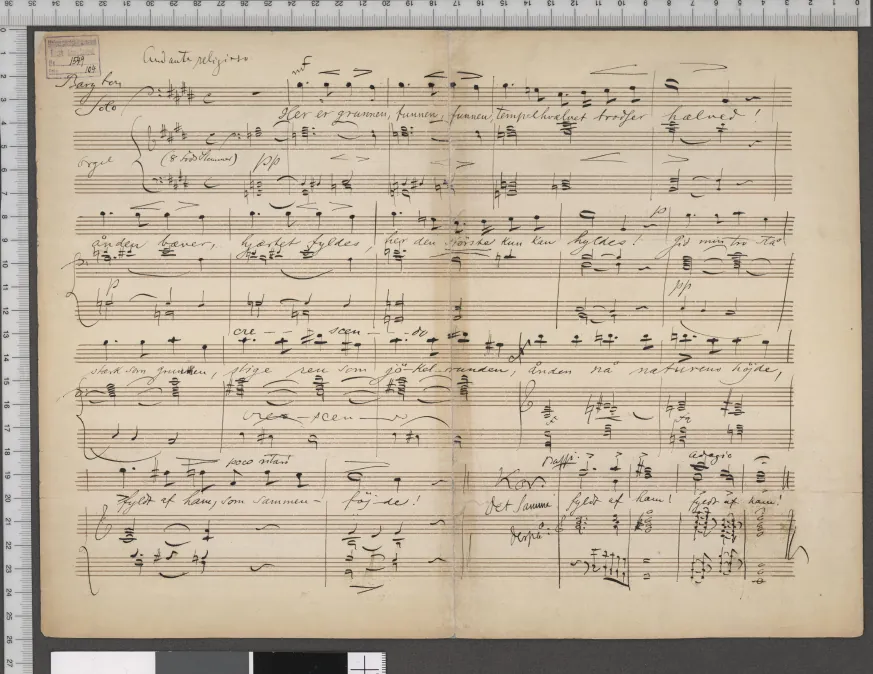 Andante religioso
Baryton
Solo
mf
Her er grunnen, funnen, funnen, tempelhvælvet trodser hælved!
Orgel
(8 Fods Stemmer)
pp
p
ånden bæver, hjærtet fyldes, her den største kun kan hyldes! Gid min tro stå
p
pp
cre - - - scen - - - do
stærk som grunnen, stige ren som jö-kel-runden, ånden nå naturens höjde,
cre - scen - do
poco ritard
Adagio
fyldt af ham, som sammen- föj-de!
Kor.
Det samme
fyldt af ham! fyldt af ham!